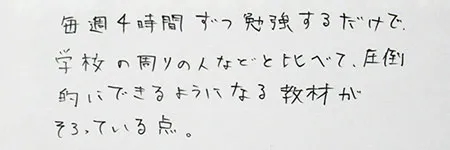 毎週4時間ずつ勉強するだけで、
学校の周りの人などと比べて、圧倒
的にできるようになる教材が
そろっている点。